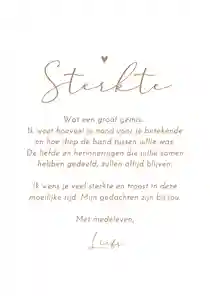 Sterkte
Wat een groot gemis.
Ik weet hoeveel je hond voor je betekende
en hoe diep de band tussen jullie was.
De liefde en herinneringen die jullie samen
hebben gedeeld, zullen altijd blijven.
Ik wens je veel sterkte en troost in deze
moeilijke tijd. Mijn gedachten zijn bij jou.
Met medeleven,